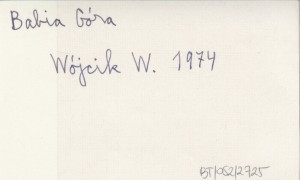 Babia Góra
Wójcik W. 1974
BT/052/2725